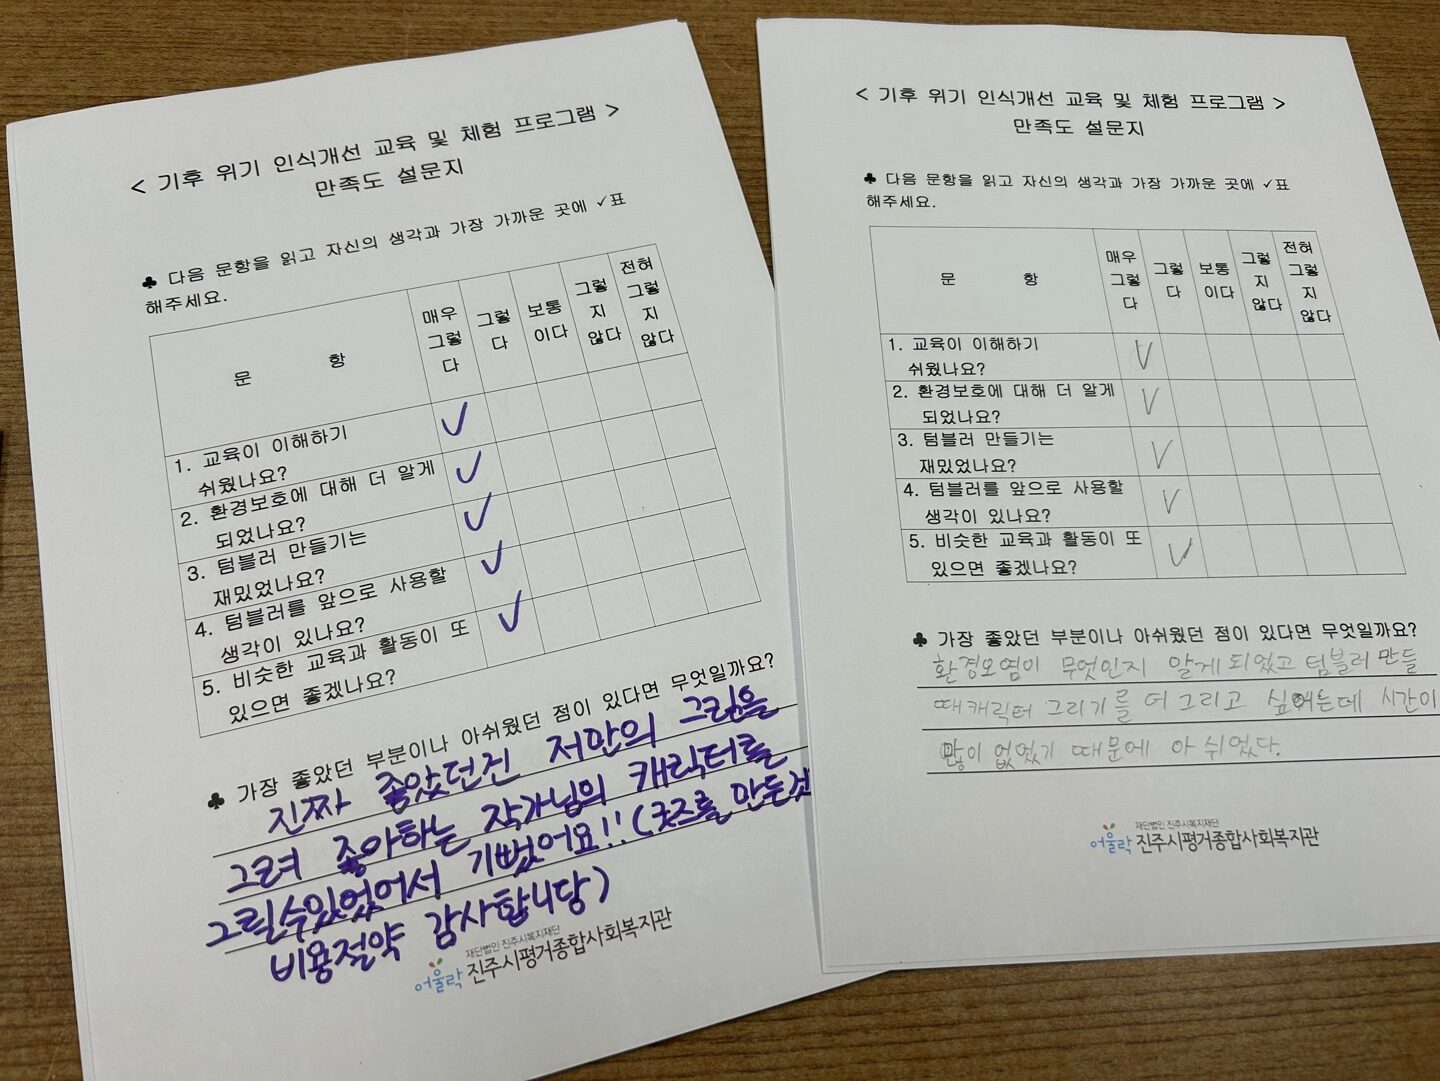 < 기후 위기 인식개선 교육 및 체험 프로그램 >
만족도 설문지
♣ 다음 문항을 읽고 자신의 생각과 가장 가까운 곳에 ✓표
해주세요.
문 항
매우
그렇
다
그렇
다
보통
이다
그렇
지
않다
전혀
그렇
지
않다
1. 교육이 이해하기
쉬웠나요?
2. 환경보호에 대해 더 알게
되었나요?
3. 텀블러 만들기는
재밌었나요?
4. 텀블러를 앞으로 사용할
생각이 있나요?
5. 비슷한 교육과 활동이 또
있으면 좋겠나요?
♣ 가장 좋았던 부분이나 아쉬웠던 점이 있다면 무엇일까요?
진짜 좋았던건 저만의 그림을
그려 좋아하는 작가님의 캐릭터를
그릴수있었어서 기뻤어요!! (굿즈를 만든것
비용절약 감사합니당)
어울락
재단법인 진주시복지재단
진주시평거종합사회복지관
< 기후 위기 인식개선 교육 및 체험 프로그램 >
만족도 설문지
♣ 다음 문항을 읽고 자신의 생각과 가장 가까운 곳에 ✓표
해주세요.
문 항
매우
그렇
다
그렇
다
보통
이다
그렇
지
않다
전혀
그렇
지
않다
1. 교육이 이해하기
쉬웠나요?
2. 환경보호에 대해 더 알게
되었나요?
3. 텀블러 만들기는
재밌었나요?
4. 텀블러를 앞으로 사용할
생각이 있나요?
5. 비슷한 교육과 활동이 또
있으면 좋겠나요?
♣ 가장 좋았던 부분이나 아쉬웠던 점이 있다면 무엇일까요?
환경오염이 무엇인지 알게되었고 텀블러만들
때캐릭터 그리기를 더 그리고 싶었는데 시간이
많이 없었기 때문에 아쉬었다.
어울락
재단법인 진주시복지재단
진주시평거종합사회복지관